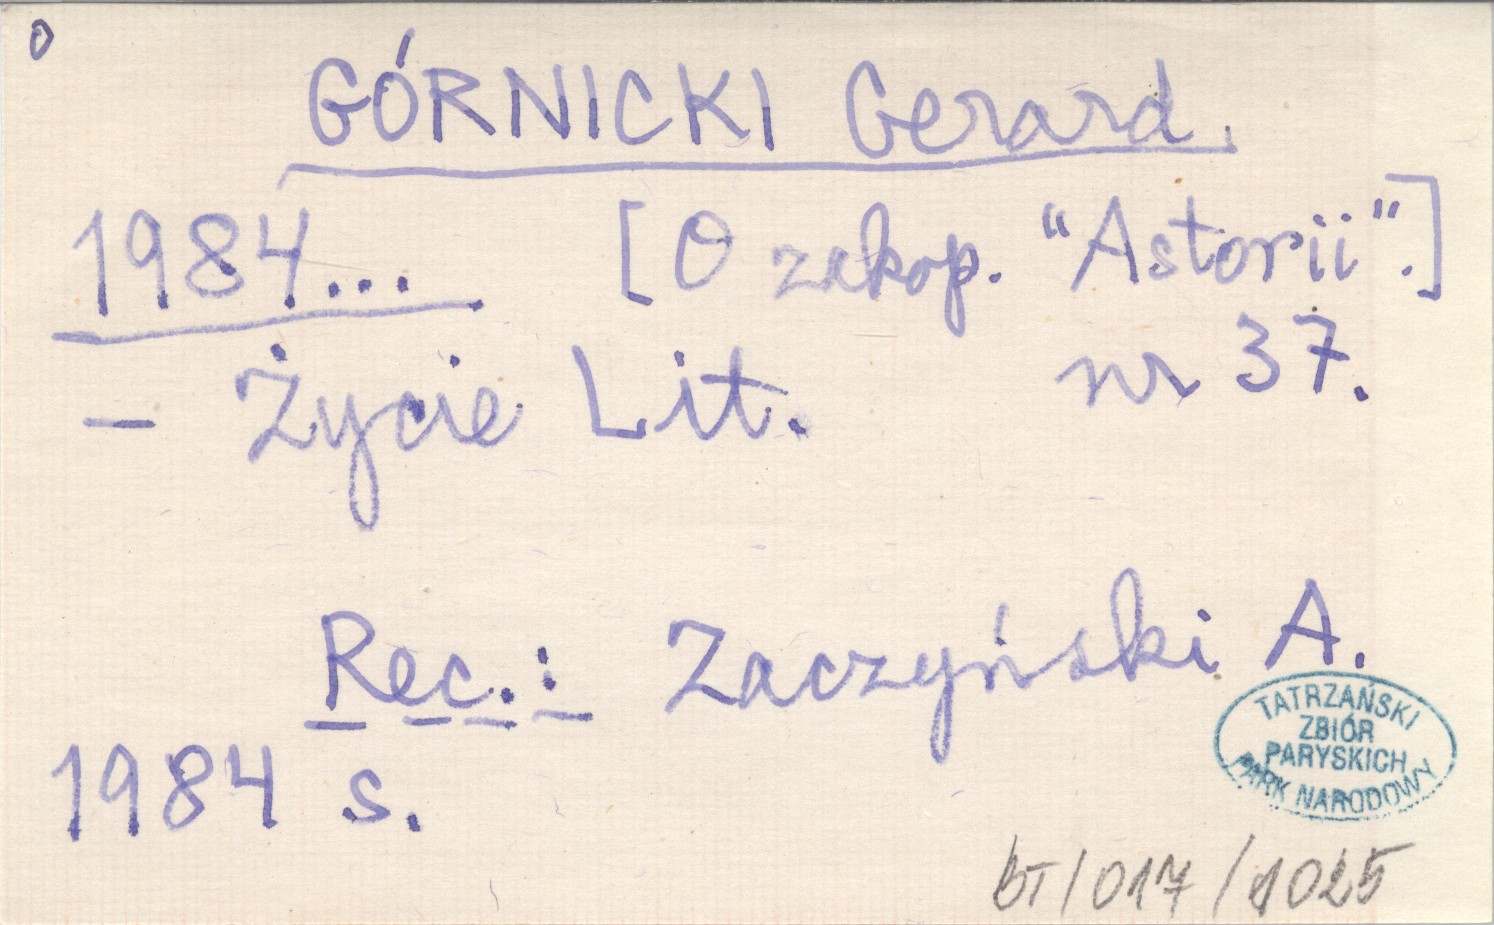 O
GÓRNICKI Gerard.
1984... [O zakop. "Astorii".]
– Życie Lit. nr 37.
Rec.: Zaczyński A.
1984 s.
TATRZAŃSKI
ZBIÓR
PARYSKICH
PARK NARODOWY
bT/017/1025